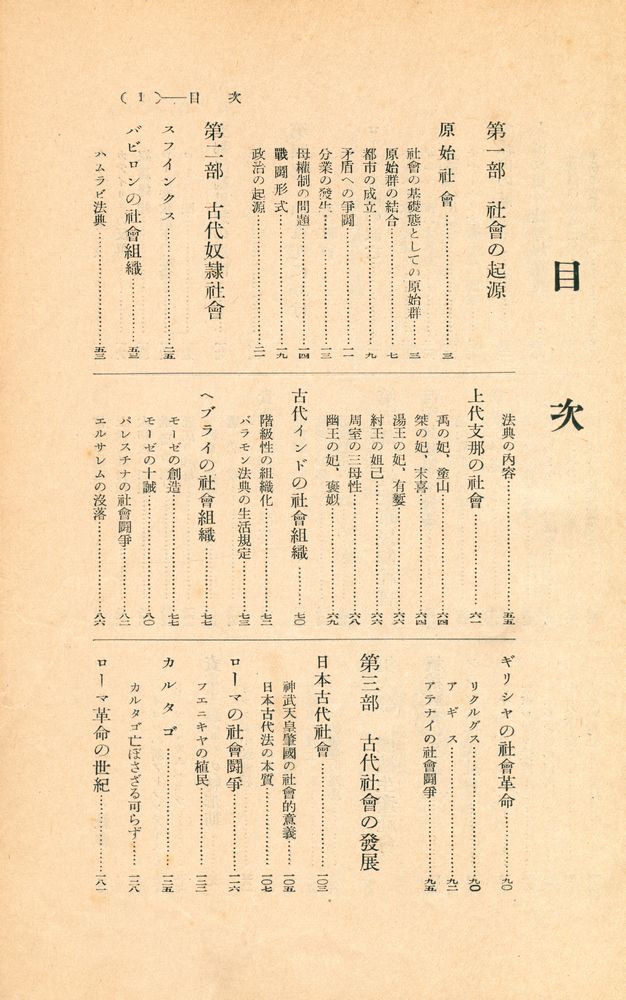 目次
第一部 社會の起源
原始社會…………三
社會の基礎態としての原始群……三
原始群の結合…………七
都市の成立…………九
矛盾への爭鬪…………一一
分業の發生…………一三
母權制の問題…………一四
戰鬪形式…………一九
政治の起源…………二一
第二部 古代奴隷社會
スフインクス…………二五
バビロンの社會組織…………五三
ハムラビ法典…………五三
法典の內容…………五五
上代支那の社會…………六一
禹の妃、塗山…………六四
桀の妃、末喜…………六四
湯王の妃、有㜪…………六六
紂王の妲己…………六六
周室の三母性…………六八
幽王の妃、褒姒…………六九
古代インドの社會組織…………七〇
階級性の組織化…………七二
バラモン法典の生活規定…………七三
ヘブライの社會組織…………七七
モーゼの創造…………七七
モーゼの十誡…………八〇
パレスチナの社會鬪爭…………八二
エルサレムの沒落…………八六
ギリシヤの社會革命…………九〇
リクルグス…………九〇
アギス…………九二
アテナイの社會鬪爭…………九五
第三部 古代社會の發展
日本古代社會…………一〇三
神武天皇肇國の社會的意義……一〇五
日本古代法の本質…………一〇七
ローマの社會鬪爭…………一一六
フエニキヤの植民…………一二二
カルタゴ…………一二五
カルタゴ亡ぼさざる可らず……一二八
ローマ革命の世紀…………一八一
(1)——目次